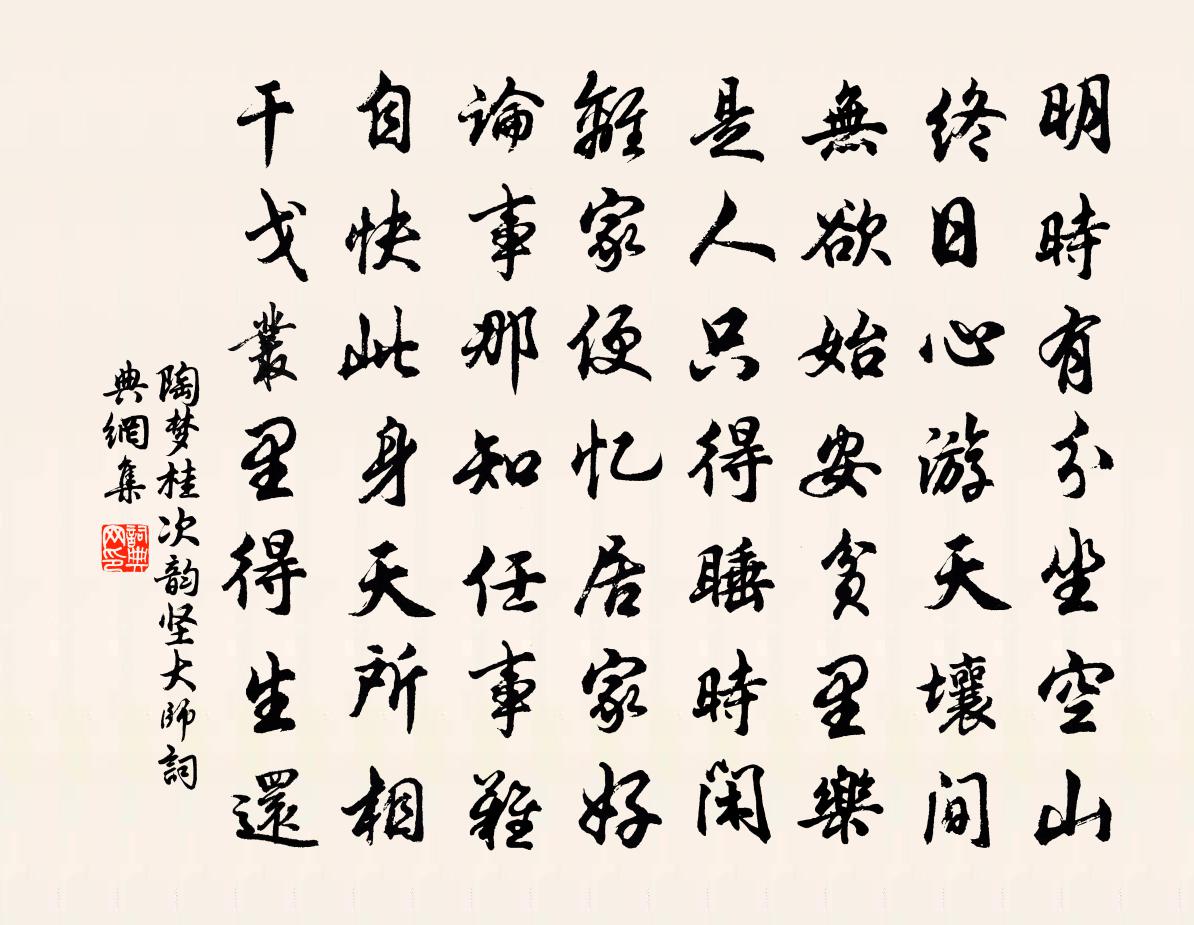 明時有分坐空山
終日心游天壤間
無欲始安貧里樂
是人只得睡時闲
離家便忆居家好
論事那知任事難
自快此身天所相
干戈叢里得生還
陶梦桂次韵坚大师詞
典網集
詞典
网印